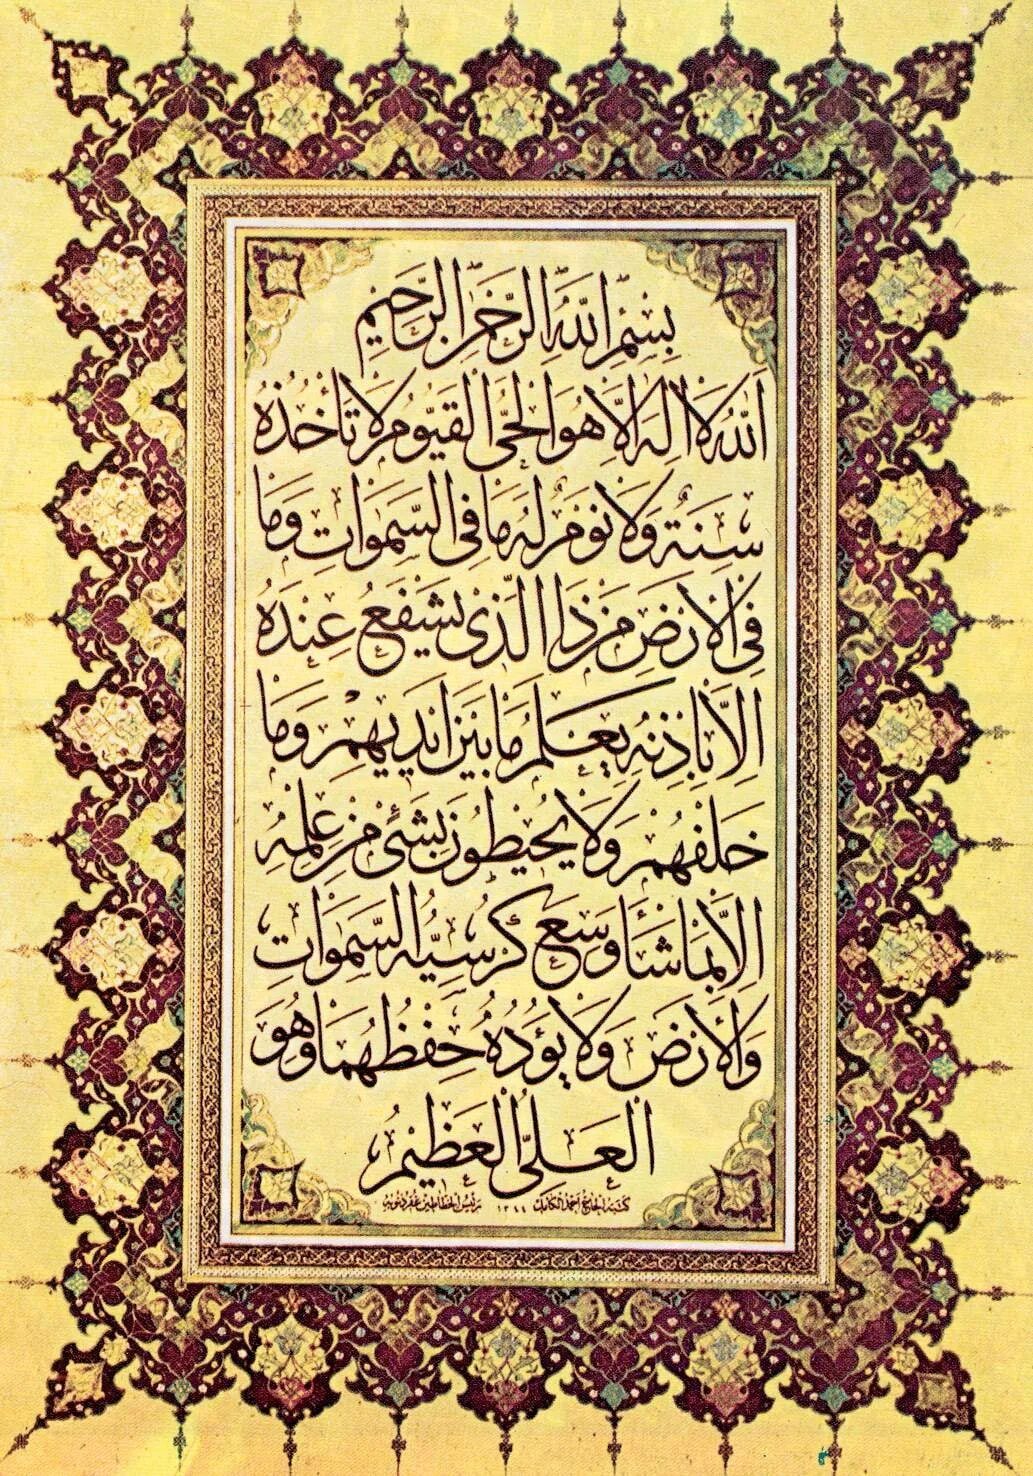 بِسْمِ اللّٰهِ الرَّحْمٰنِ الرَّحِيمِ
اَللّٰهُ لَا اِلٰهَ اِلَّا هُوَ الْحَىُّ الْقَيُّومُ لَا تَأْخُذُهُ
سِنَةٌ وَلَا نَوْمٌ لَهُ مَا فِى السَّمٰوَاتِ وَمَا
فِى الْاَرْضِ مَنْ ذَا الَّذِى يَشْفَعُ عِنْدَهُ
اِلَّا بِاِذْنِهِ يَعْلَمُ مَا بَيْنَ اَيْدِيهِمْ وَمَا
خَلْفَهُمْ وَلَا يُحِيطُونَ بِشَىْءٍ مِنْ عِلْمِهِ
اِلَّا بِمَا شَاءَ وَسِعَ كُرْسِيُّهُ السَّمٰوَاتِ
وَالْاَرْضَ وَلَا يَؤُدُهُ حِفْظُهُمَا وَهُوَ
الْعَلِىُّ الْعَظِيمُ
كتبه الحاج احمد الكامل ١٣٦٦ رئيس الخطاطين غفر ذنوبه